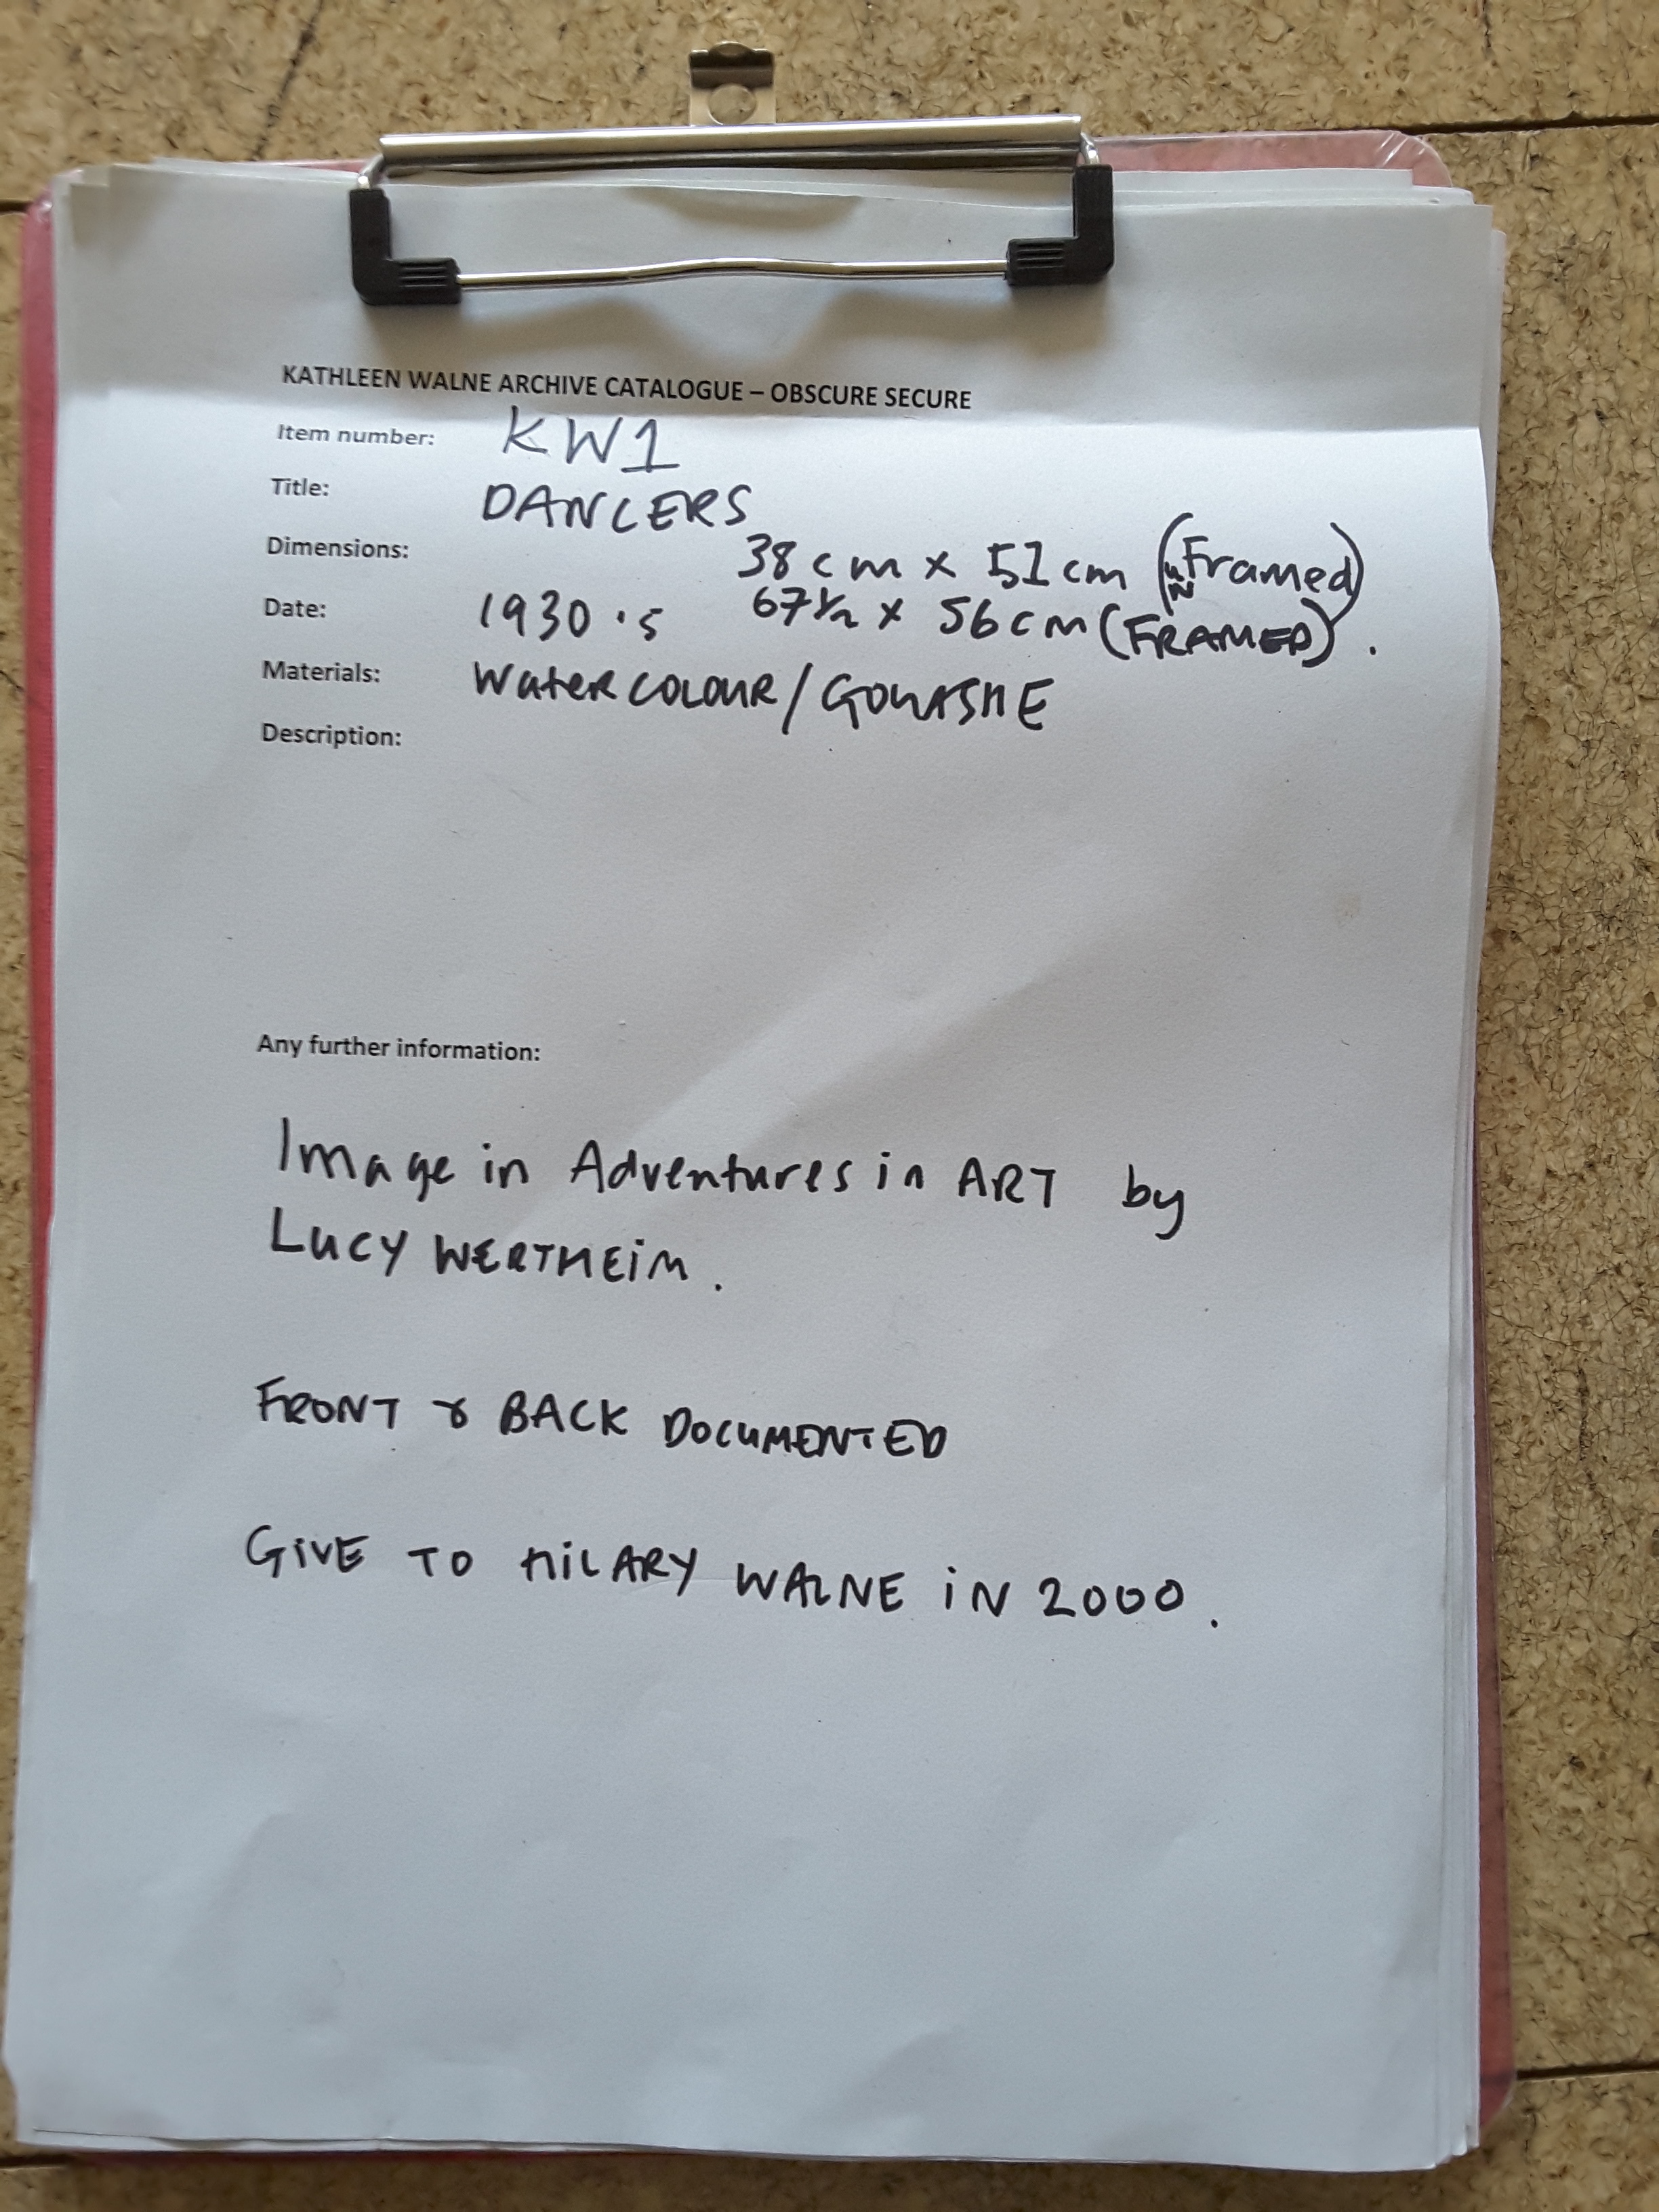 KATHLEEN WALNE ARCHIVE CATALOGUE – OBSCURE SECURE
Item number: KW1
Title: DANCERS
Dimensions: 38cm x 51cm (unFramed)
67½ x 56cm (FRAMED).
Date: 1930's
Materials: WaterCOLOUR/GOUASHE
Description:
Any further information:
Image in Adventures in ART by
LUCY WERTHEIM.
FRONT & BACK DOCUMENTED
GIVE TO HILARY WALNE IN 2000.